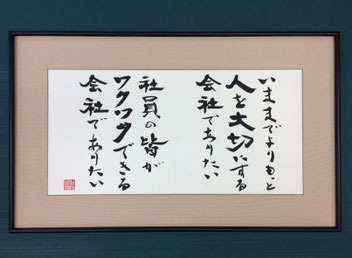 いままでよりもっと
人を大切にする
会社でありたい
社員の皆が
ワクワクできる
会社でありたい